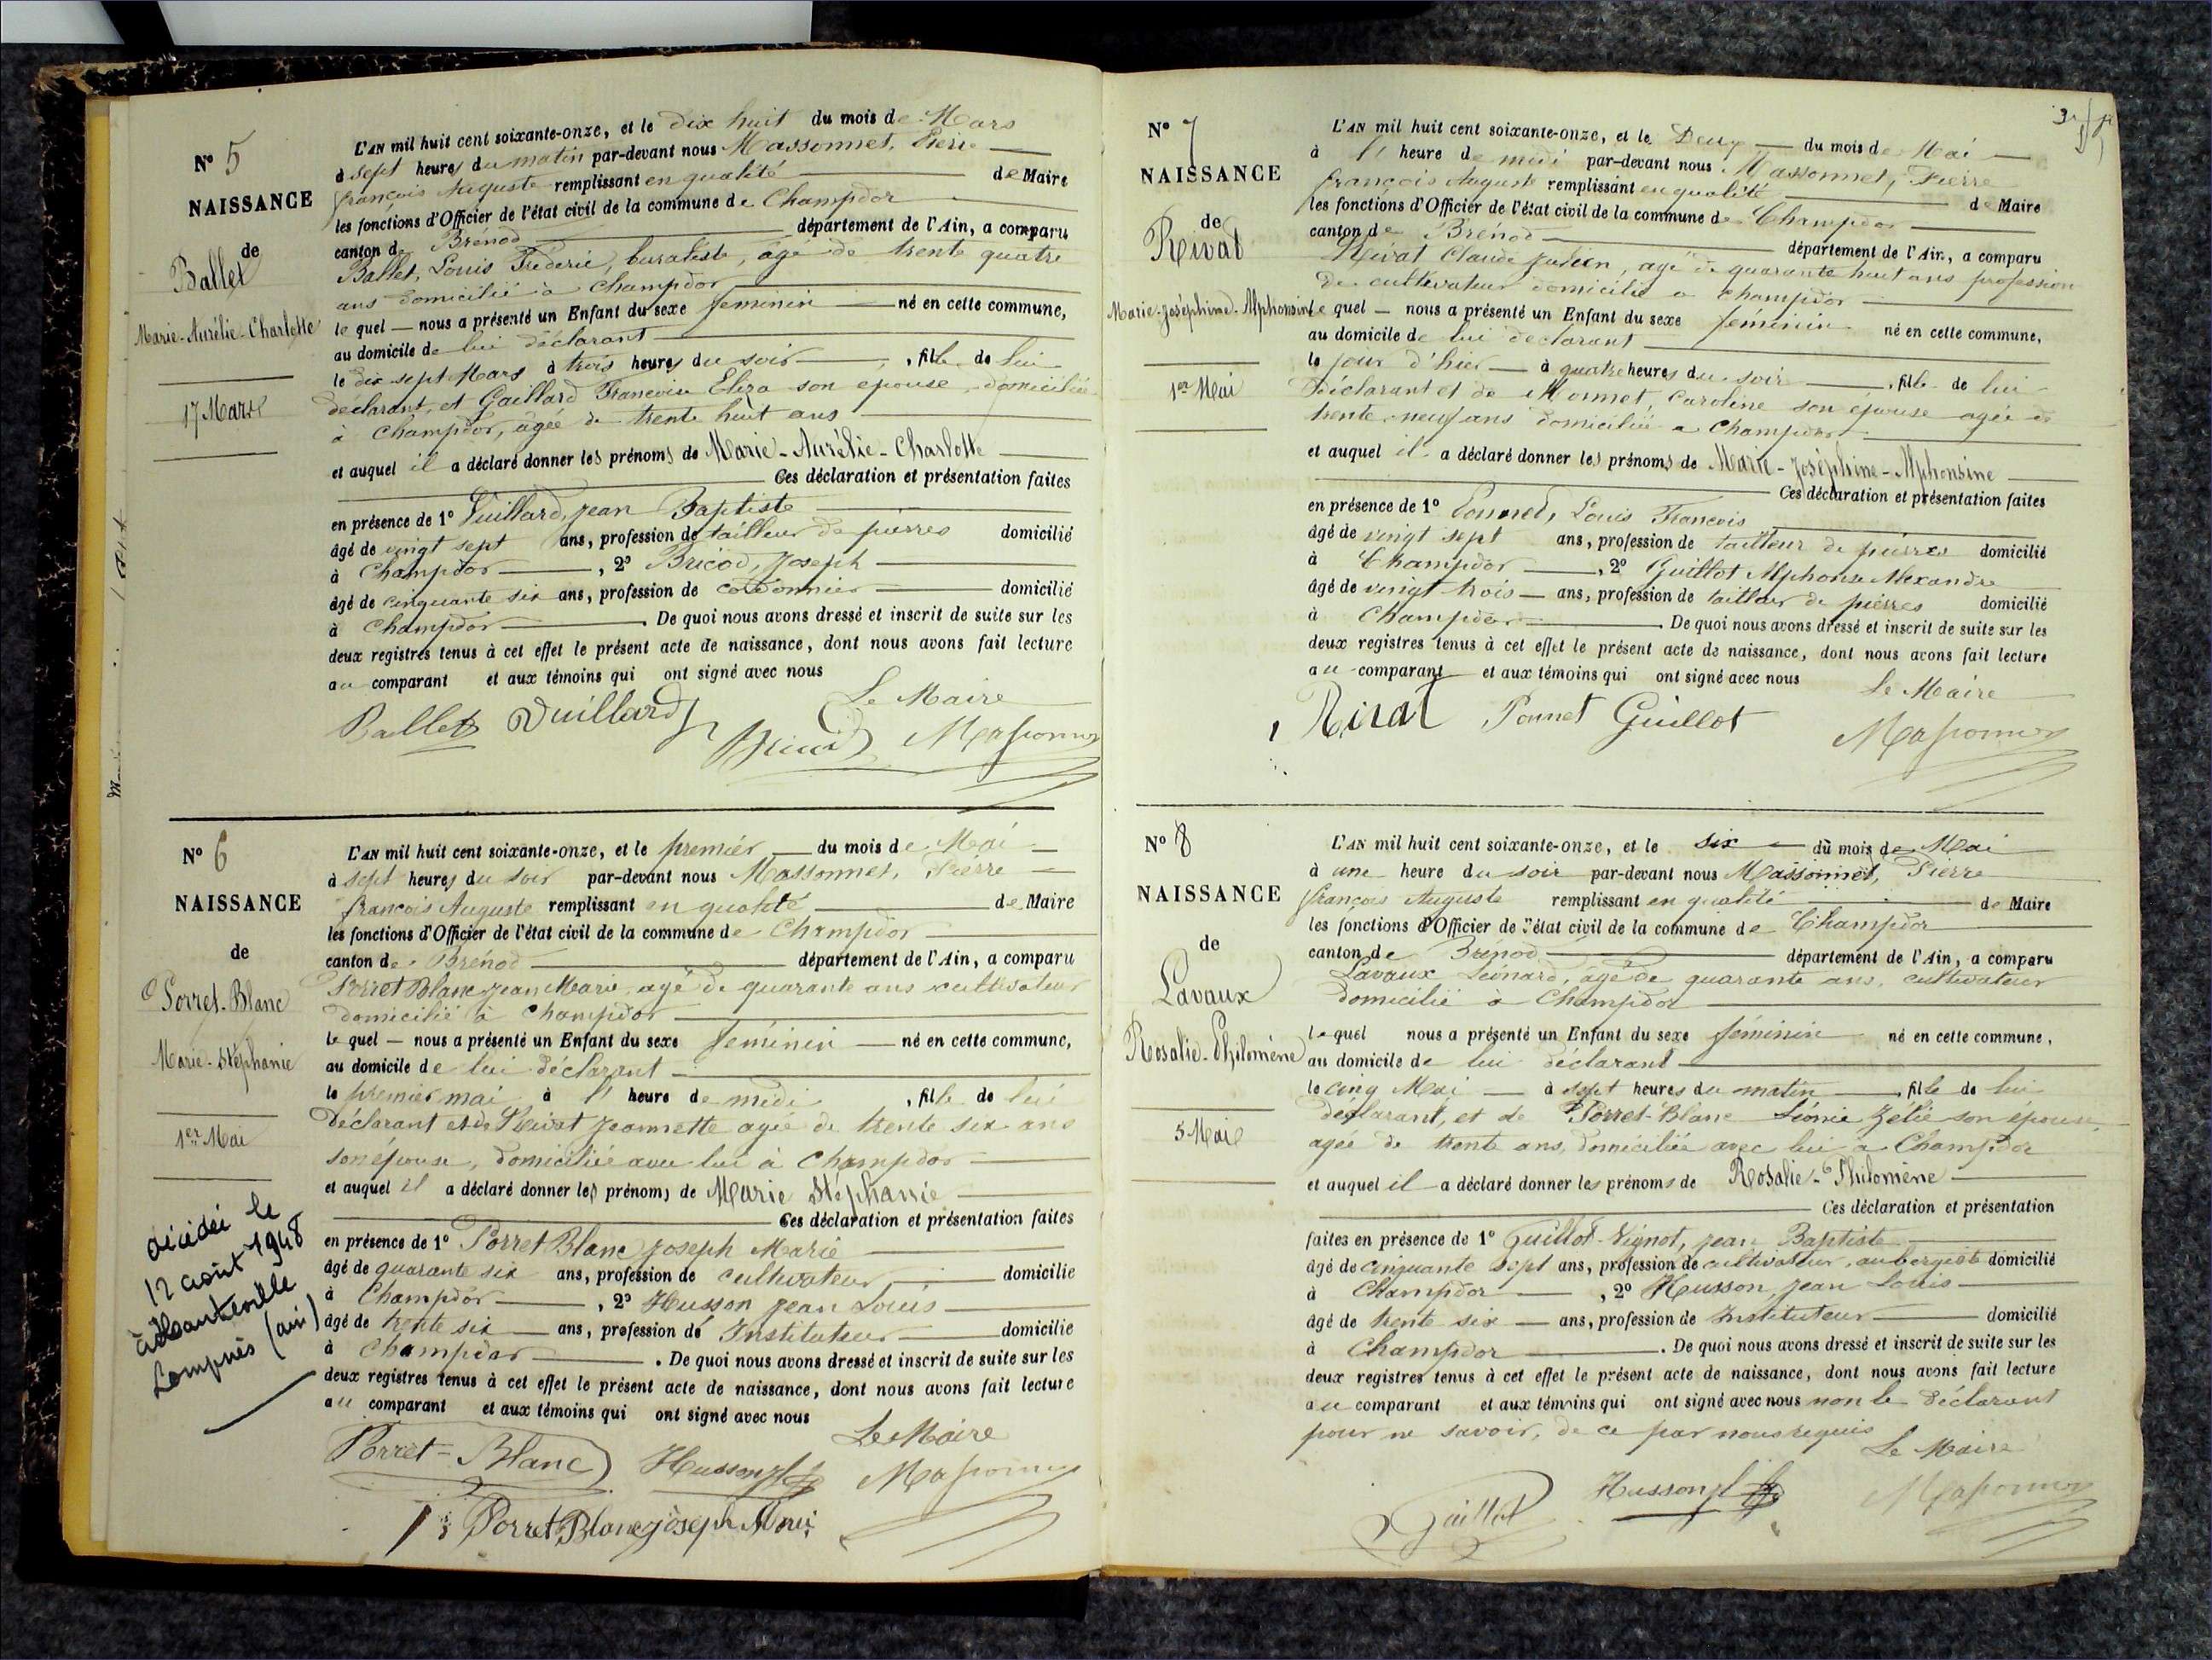 N° 5
NAISSANCE
de
Ballet
Marie-Aurélie-Charlotte
17 Mars
L'AN mil huit cent soixante-onze, et le dix huit du mois de Mars
à sept heures du matin par-devant nous Massonnet, Pierre
françois Auguste remplissant en qualité de Maire
les fonctions d'Officier de l'état civil de la commune de Champdor
canton de Brénod département de l'Ain, a comparu
Ballet, Louis Frédéric, buraliste, âgé de trente quatre
ans domicilié à Champdor
le quel nous a présenté un Enfant du sexe féminin né en cette commune,
au domicile de lui déclarant
le dix sept Mars à trois heures du soir, fille de lui
déclarant, et Gaillard Francoise Eliza son épouse, domiciliée
à Champdor, âgée de trente huit ans
et auquel il a déclaré donner les prénoms de Marie-Aurélie-Charlotte
Ces déclaration et présentation faites
en présence de 1° Vuillard, jean Baptiste
âgé de vingt sept ans, profession de tailleur de pierres domicilié
à Champdor, 2° Bricod, Joseph
âgé de cinquante six ans, profession de cordonnier domicilié
à Champdor. De quoi nous avons dressé et inscrit de suite sur les
deux registres tenus à cet effet le présent acte de naissance, dont nous avons fait lecture
au comparant et aux témoins qui ont signé avec nous
Le Maire
Ballet Vuillard Massonnet
N° 6
NAISSANCE
de
Porret-Blanc
Marie-Stéphanie
1er Mai
décédée le
12 août 1948
à Hauteville
Lompnès (ain)
L'AN mil huit cent soixante-onze, et le premier du mois de Mai
à sept heures du soir par-devant nous Massonnet, Pierre
françois Auguste remplissant en qualité de Maire
les fonctions d'Officier de l'état civil de la commune de Champdor
canton de Brénod département de l'Ain, a comparu
Porret Blanc jean Marie, agé de quarante ans cultivateur
domicilié à Champdor
le quel nous a présenté un Enfant du sexe féminin né en cette commune,
au domicile de lui déclarant
le premier mai à l' heure de midi, fille de lui
déclarant et de Rivat Jeannette agée de trente six ans
son épouse, domiciliée avec lui à Champdor
et auquel il a déclaré donner les prénoms de Marie Stéphanie
Ces déclaration et présentation faites
en présence de 1° Porret Blanc Joseph Marie
âgé de quarante six ans, profession de cultivateur domicilié
à Champdor, 2° Husson Jean Louis
âgé de trente six ans, profession de Instituteur domicilié
à Champdor. De quoi nous avons dressé et inscrit de suite sur les
deux registres tenus à cet effet le présent acte de naissance, dont nous avons fait lecture
au comparant et aux témoins qui ont signé avec nous
Le Maire
Porret-Blanc Husson Massonnet
Porret Blanc joseph Marie
N° 7
NAISSANCE
de
Rivat
Marie-Joséphine-Alphonsine
1er Mai
L'AN mil huit cent soixante-onze, et le Deux du mois de Mai
à l' heure de midi par-devant nous Massonnet, Pierre
françois Auguste remplissant en qualité de Maire
les fonctions d'Officier de l'état civil de la commune de Champdor
canton de Brénod département de l'Ain, a comparu
Rivat Claude Julien, agé de quarante huit ans profession
de cultivateur domicilié à Champdor
le quel nous a présenté un Enfant du sexe féminin né en cette commune,
au domicile de lui déclarant
le jour d'hier à quatre heures du soir, fille de lui
déclarant et de Monnet, Caroline son épouse agée de
trente-neuf ans domiciliée à Champdor
et auquel il a déclaré donner les prénoms de Marie-Joséphine-Alphonsine
Ces déclaration et présentation faites
en présence de 1° Ponnet, Louis François
âgé de vingt sept ans, profession de tailleur de pierres domicilié
à Champdor, 2° Guillot Alphonse Alexandre
âgé de vingt trois ans, profession de tailleur de pierres domicilié
à Champdor. De quoi nous avons dressé et inscrit de suite sur les
deux registres tenus à cet effet le présent acte de naissance, dont nous avons fait lecture
au comparant et aux témoins qui ont signé avec nous
Le Maire
Rivat Ponnet Guillot Massonnet
N° 8
NAISSANCE
de
Lavaux
Rosalie-Philomène
5 Mai
L'AN mil huit cent soixante-onze, et le six du mois de Mai
à une heure du soir par-devant nous Massonnet, Pierre
françois Auguste remplissant en qualité de Maire
les fonctions d'Officier de l'état civil de la commune de Champdor
canton de Brénod département de l'Ain, a comparu
Lavaux Léonard, âgé de quarante ans, cultivateur
domicilié à Champdor
le quel nous a présenté un Enfant du sexe féminin né en cette commune,
au domicile de lui déclarant
le cinq Mai à sept heures du matin, fille de lui
déclarant, et de Porret-Blanc Léonie Zélie son épouse,
agée de trente ans, domiciliée avec lui à Champdor
et auquel il a déclaré donner les prénoms de Rosalie-Philomène
Ces déclaration et présentation
faites en présence de 1° Guillot-Vignot, jean Baptiste
âgé de cinquante sept ans, profession de cultivateur, aubergiste domicilié
à Champdor, 2° Husson, Jean Louis
âgé de trente six ans, profession de Instituteur domicilié
à Champdor. De quoi nous avons dressé et inscrit de suite sur les
deux registres tenus à cet effet le présent acte de naissance, dont nous avons fait lecture
au comparant et aux témoins qui ont signé avec nous non le déclarant
pour ne savoir, de ce par nous requis
Le Maire
Guillot Husson Massonnet